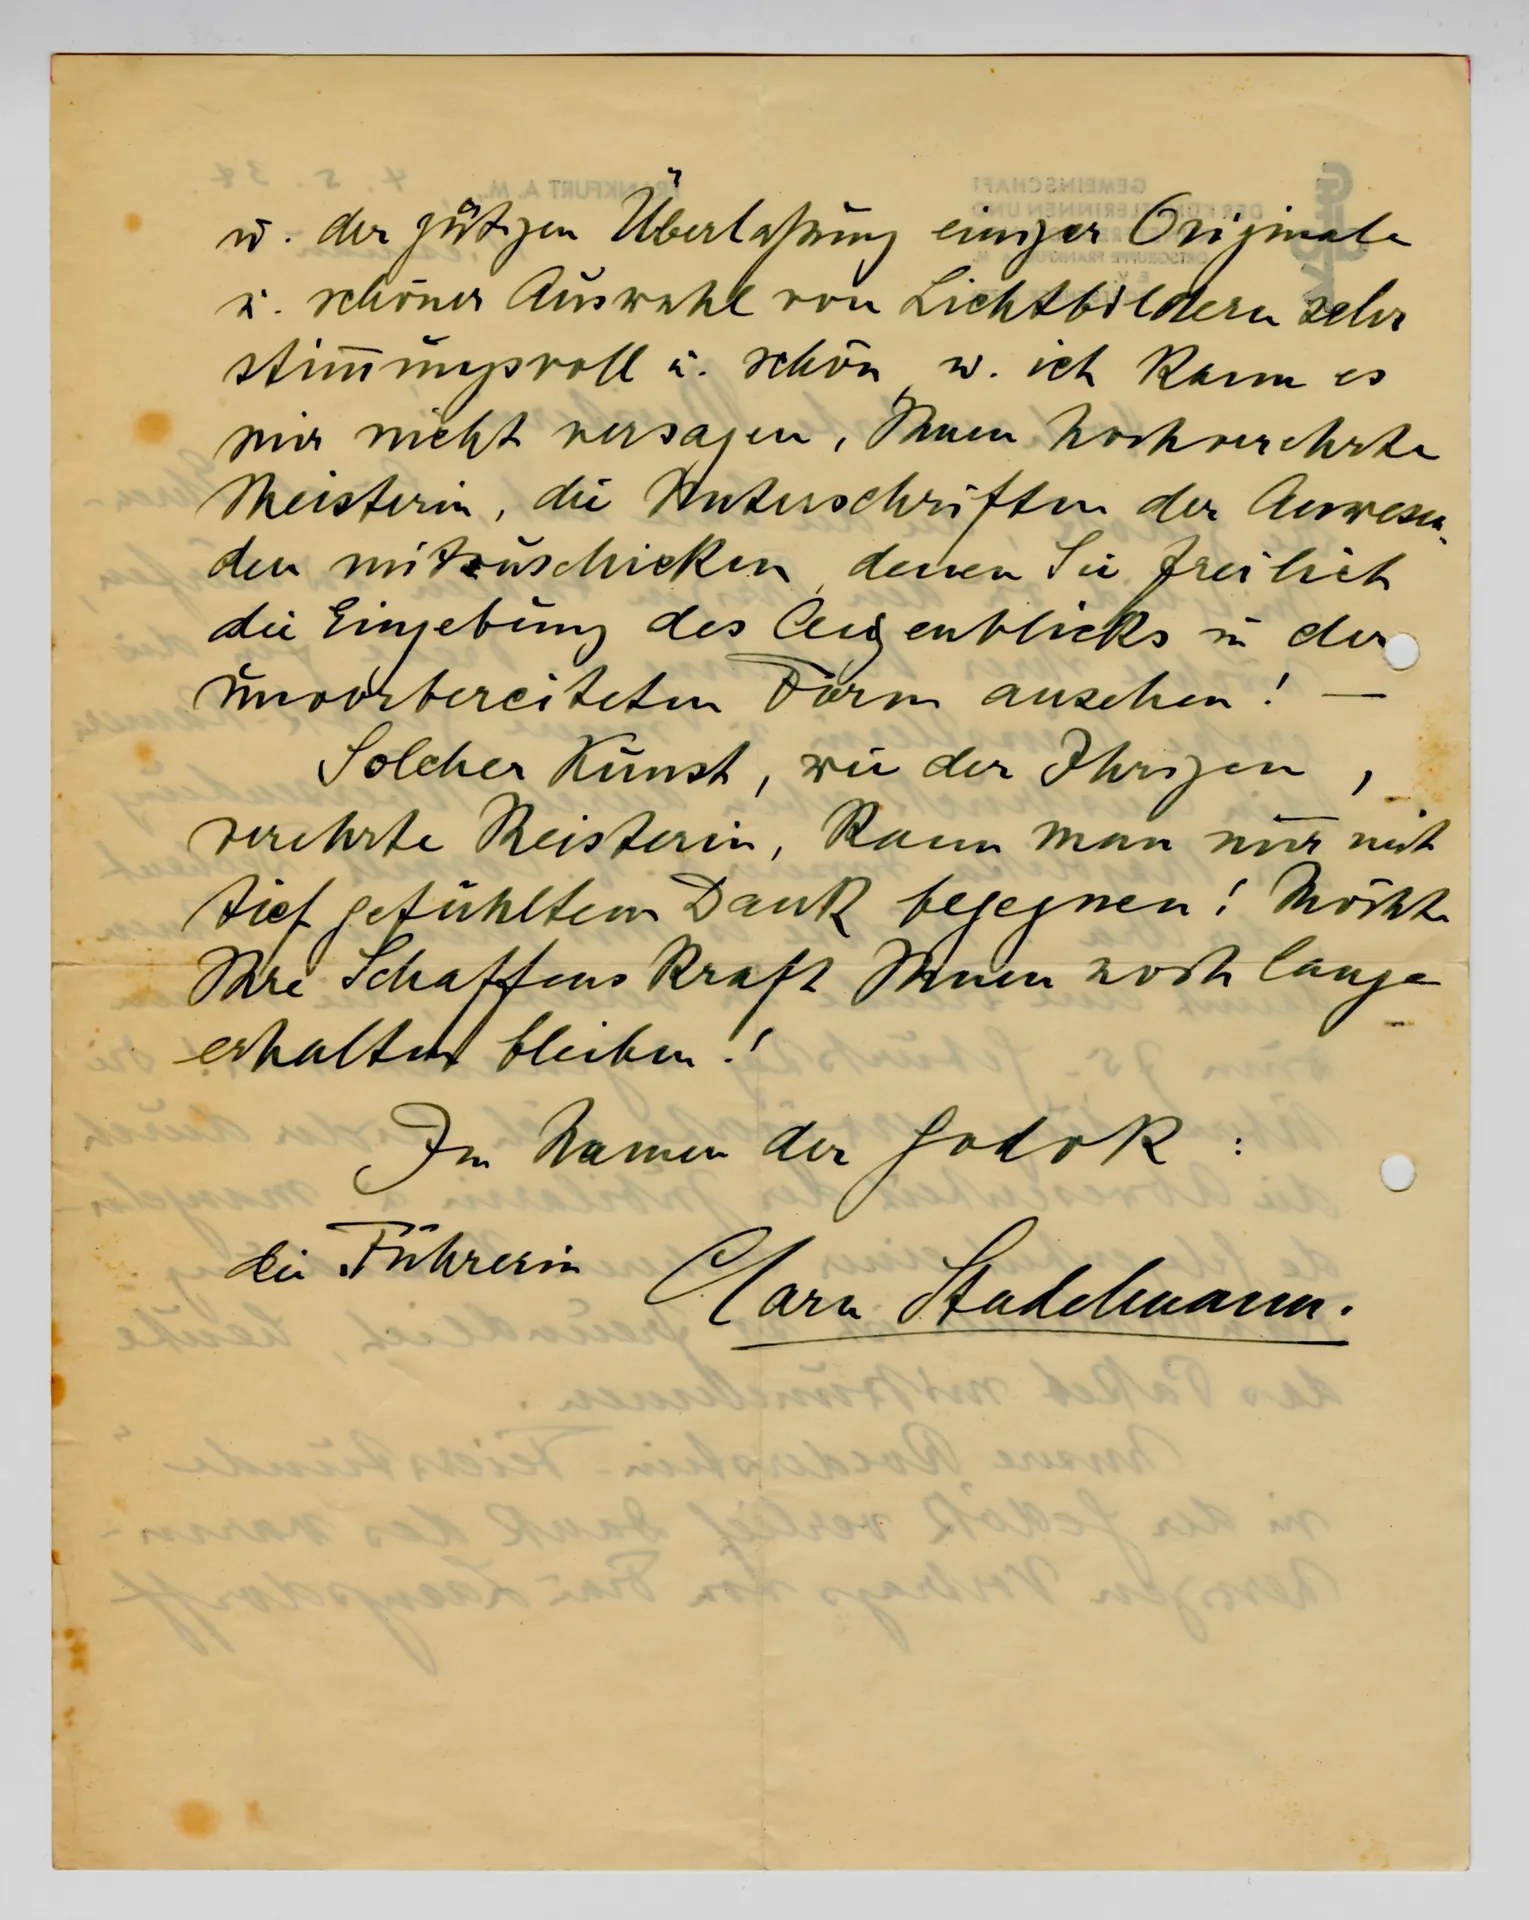 u. der gütigen Überlaßung einiger Originale
u. schöner Auswahl von Lichtbildern sehr
stim̅ungsvoll u. schön, u. ich kann es
mir nicht versagen, Ihnen hochverehrte
Meisterin, die Unterschriften der Anwesen-
den mitzuschicken, denen Sie freilich
die Eingebung des Augenblicks in der
unvorbereiteten Form ansehen! —
Solcher Kunst, wie der Ihrigen,
verehrte Meisterin, kann man nur mit
tief gefühltem Dank begegnen! Möchte
Ihre Schaffenskraft Ihnen noch lange
erhalten bleiben!
Im Namen der Gedok:
die Führerin Clara Stadelmann.